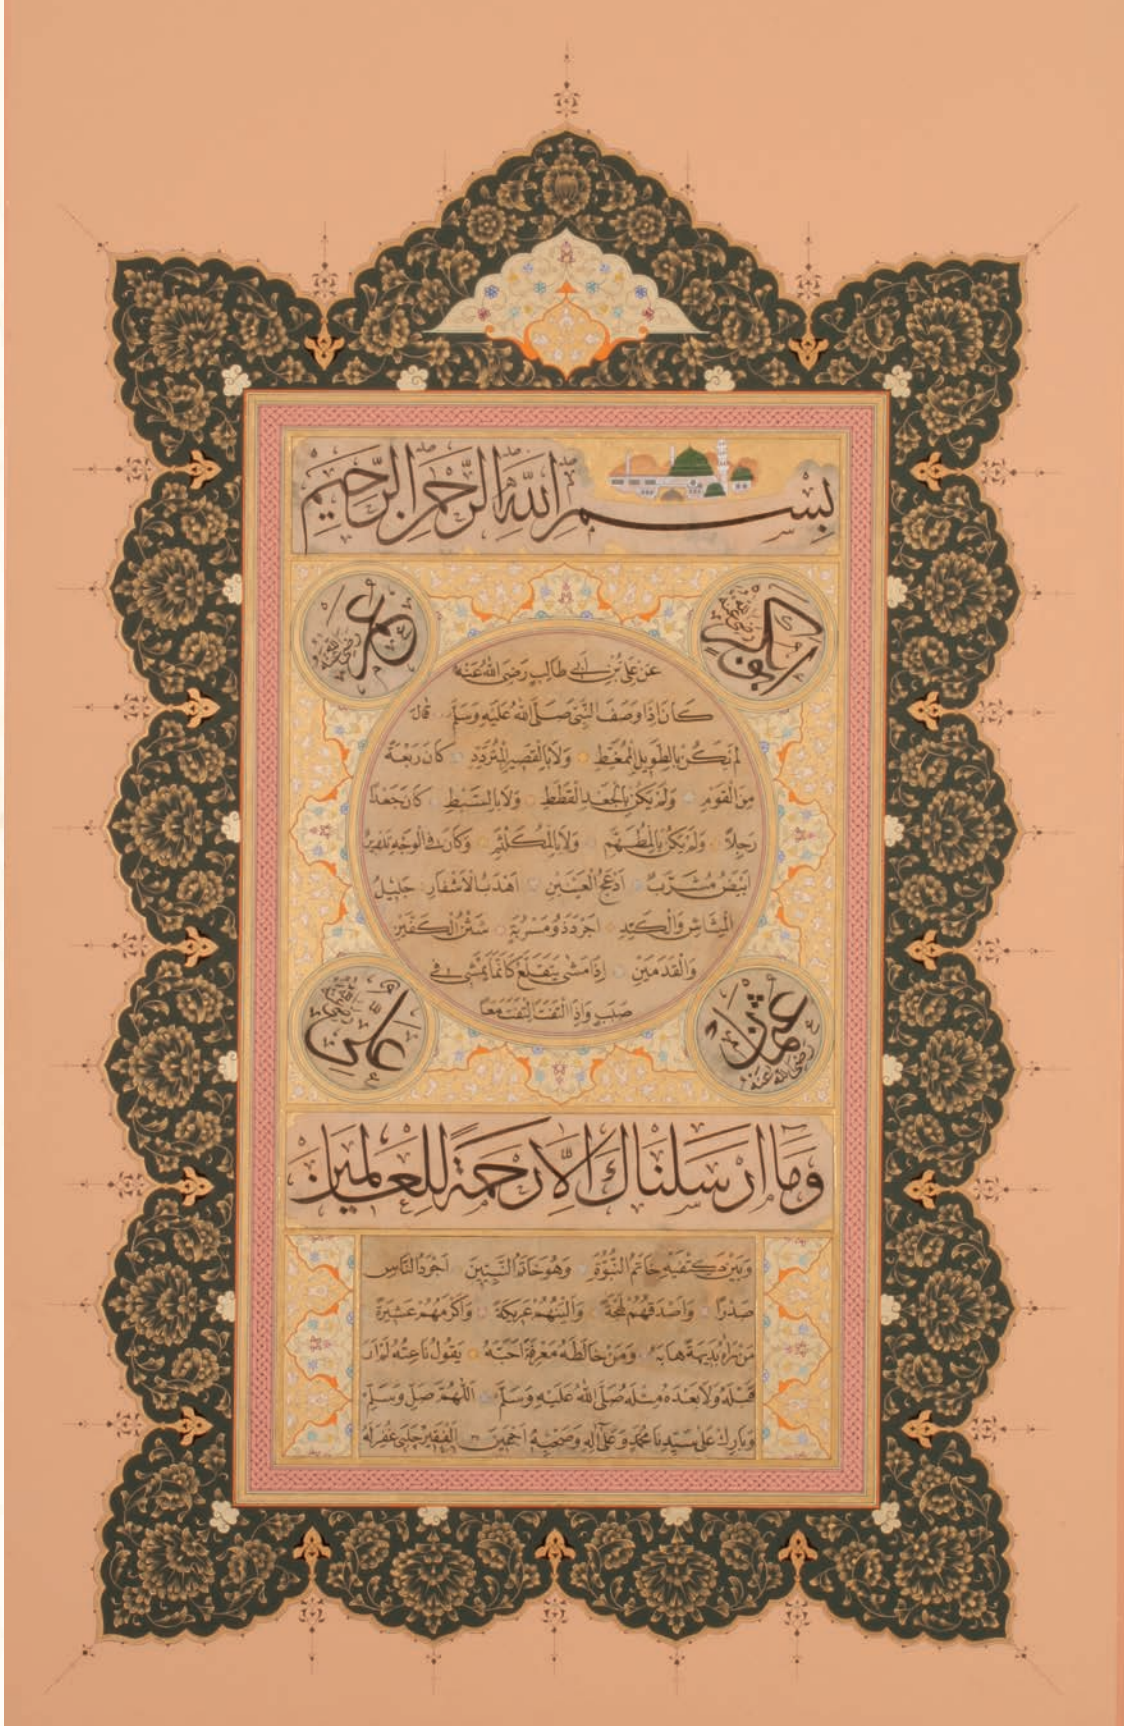 بِسْمِ اللّٰهِ الرَّحْمٰنِ الرَّحِيمِ
ابو بكر رضى الله عنه
عمر رضى الله عنه
عَنْ عَلِىِّ بْنِ اَبِى طَالِبٍ رَضِىَ اللّٰهُ عَنْهُ
كَانَ اِذَا وَصَفَ النَّبِىَّ صَلَّى اللّٰهُ عَلَيْهِ وَسَلَّمَ قَالَ
لَمْ يَكُنْ بِالطَّوِيلِ الْمُمَّغِطِ وَلَا بِالْقَصِيرِ الْمُتَرَدِّدِ كَانَ رَبْعَةً
مِنَ الْقَوْمِ وَلَمْ يَكُنْ بِالْجَعْدِ الْقَطَطِ وَلَا بِالسَّبْطِ كَانَ جَعْدًا
رَجِلًا وَلَمْ يَكُنْ بِالْمُطَهَّمِ وَلَا بِالْمُكَلْثَمِ وَكَانَ فِى الْوَجْهِ تَدْوِيرٌ
اَبْيَضُ مُشْرَبٌ اَدْعَجُ الْعَيْنَيْنِ اَهْدَبُ الْاَشْفَارِ جَلِيلُ
الْمُشَاشِ وَالْكَتَدِ اَجْرَدُ ذُو مَسْرُبَةٍ شَثْنُ الْكَفَّيْنِ
وَالْقَدَمَيْنِ اِذَا مَشٰى يَتَقَلَّعُ كَاَنَّمَا يَمْشِى فِى
صَبَبٍ وَاِذَا الْتَفَتَ الْتَفَتَ مَعًا
عثمان رضى الله عنه
على رضى الله عنه
وَمَا اَرْسَلْنَاكَ اِلَّا رَحْمَةً لِلْعَالَمِينَ
وَبَيْنَ كَتِفَيْهِ خَاتَمُ النُّبُوَّةِ وَهُوَ خَاتَمُ النَّبِيِّينَ اَجْوَدُ النَّاسِ
صَدْرًا وَاَصْدَقُهُمْ لَهْجَةً وَاَلْيَنُهُمْ عَرِيكَةً وَاَكْرَمُهُمْ عَشِيرَةً
مَنْ رَاٰهُ بَدِيهَةً هَابَهُ وَمَنْ خَالَطَهُ مَعْرِفَةً اَحَبَّهُ يَقُولُ نَاعِتُهُ لَمْ اَرَ
قَبْلَهُ وَلَا بَعْدَهُ مِثْلَهُ صَلَّى اللّٰهُ عَلَيْهِ وَسَلَّمَ اَللّٰهُمَّ صَلِّ وَسَلِّمْ
وَبَارِكْ عَلٰى سَيِّدِنَا مُحَمَّدٍ وَعَلٰى اٰلِهِ وَصَحْبِهِ اَجْمَعِينَ الْفَقِيرْ چلبى غُفِرَ لَهُ